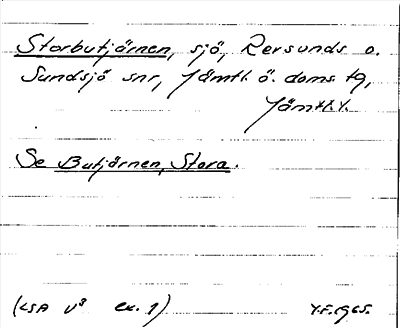 Storbutjärnen, sjö, Revsunds o.
Sundsjö snr, Jämtl. ö. doms. tg,
Jämtl.l.
Se Butjärnen, Stora.
(LSA V⁸ ex. 1) Y.F. 1965.